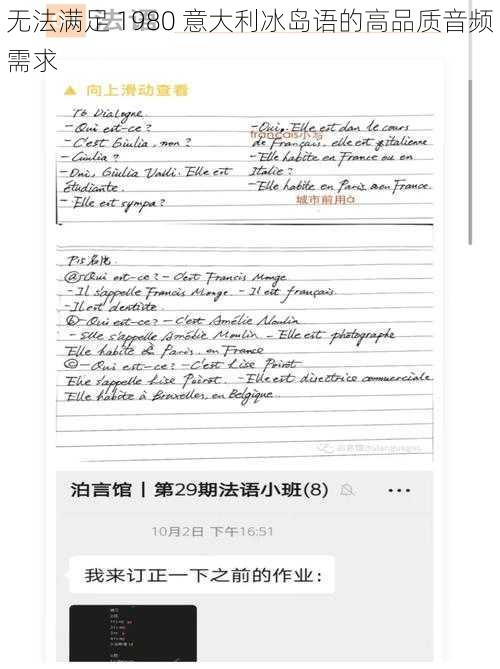 无法满足 1980 意大利冰岛语的高品质音频
需求
法语
▲ 向上滑动查看
T6 Dialogne.
- Qui est-ce?
- C'est Giulia, non?
- Giulia?
- Oui, Giulia Valli. Elle est
étudiante.
- Elle est sympa?
- Oui. Elle est dan le cours
français小写
de Français, elle est italienne
- Elle habite en France ou en
Italie?
- Elle habite en Paris, en France.
城市前用à
P15
ⓐ Qui est-ce? - C'est Francis Monge
- Il s'appelle Francis Monge. - Il est français.
- Il est dentiste.
ⓑ - Qui est-ce? - C'est Amélie Moulin
- Elle s'appelle Amélie Moulin - Elle est photographe
Elle habite à Paris, en France
ⓒ - Qui est-ce? - C'est Lise Poirot
Elle s'appelle Lise Poirot. - Elle est directrice commerciale
Elle habite à Bruxelles, en Belgique.
泊言馆 | 第29期法语小班(8)
10月2日 下午16:51
我来订正一下之前的作业：